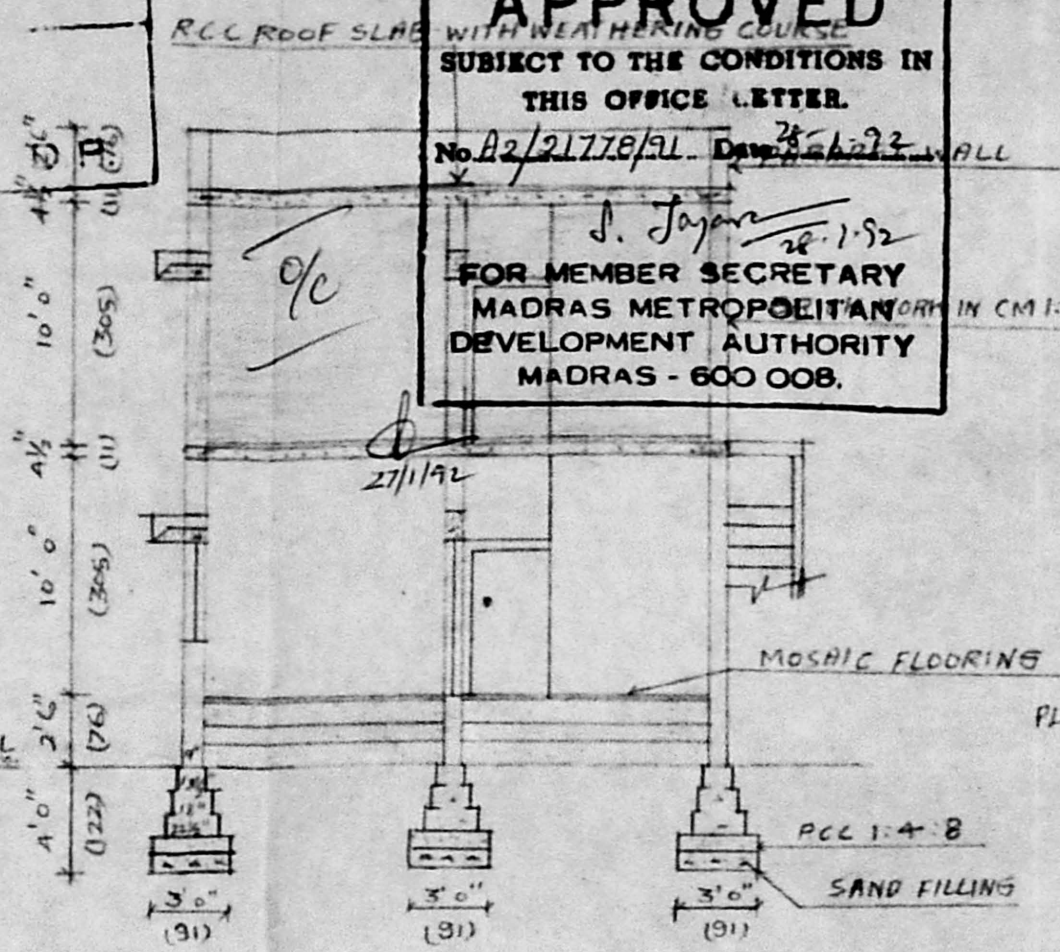 APPROVED
RCC ROOF SLAB WITH WEATHERING COURSE
SUBJECT TO THE CONDITIONS IN
THIS OFFICE LETTER.
No. A2/21778/91 Date 28-1-92
28.1.92
FOR MEMBER SECRETARY
MADRAS METROPOLITAN
DEVELOPMENT AUTHORITY
MADRAS - 600 008.
IN CM 1:
O/C
27/1/92
4½"
(11)
10'0"
(305)
4½"
(11)
10'0"
(305)
2'6"
(76)
4'0"
(122)
MOSAIC FLOORING
PCC 1:4:8
SAND FILLING
3'0"
(91)
3'0"
(91)
3'0"
(91)